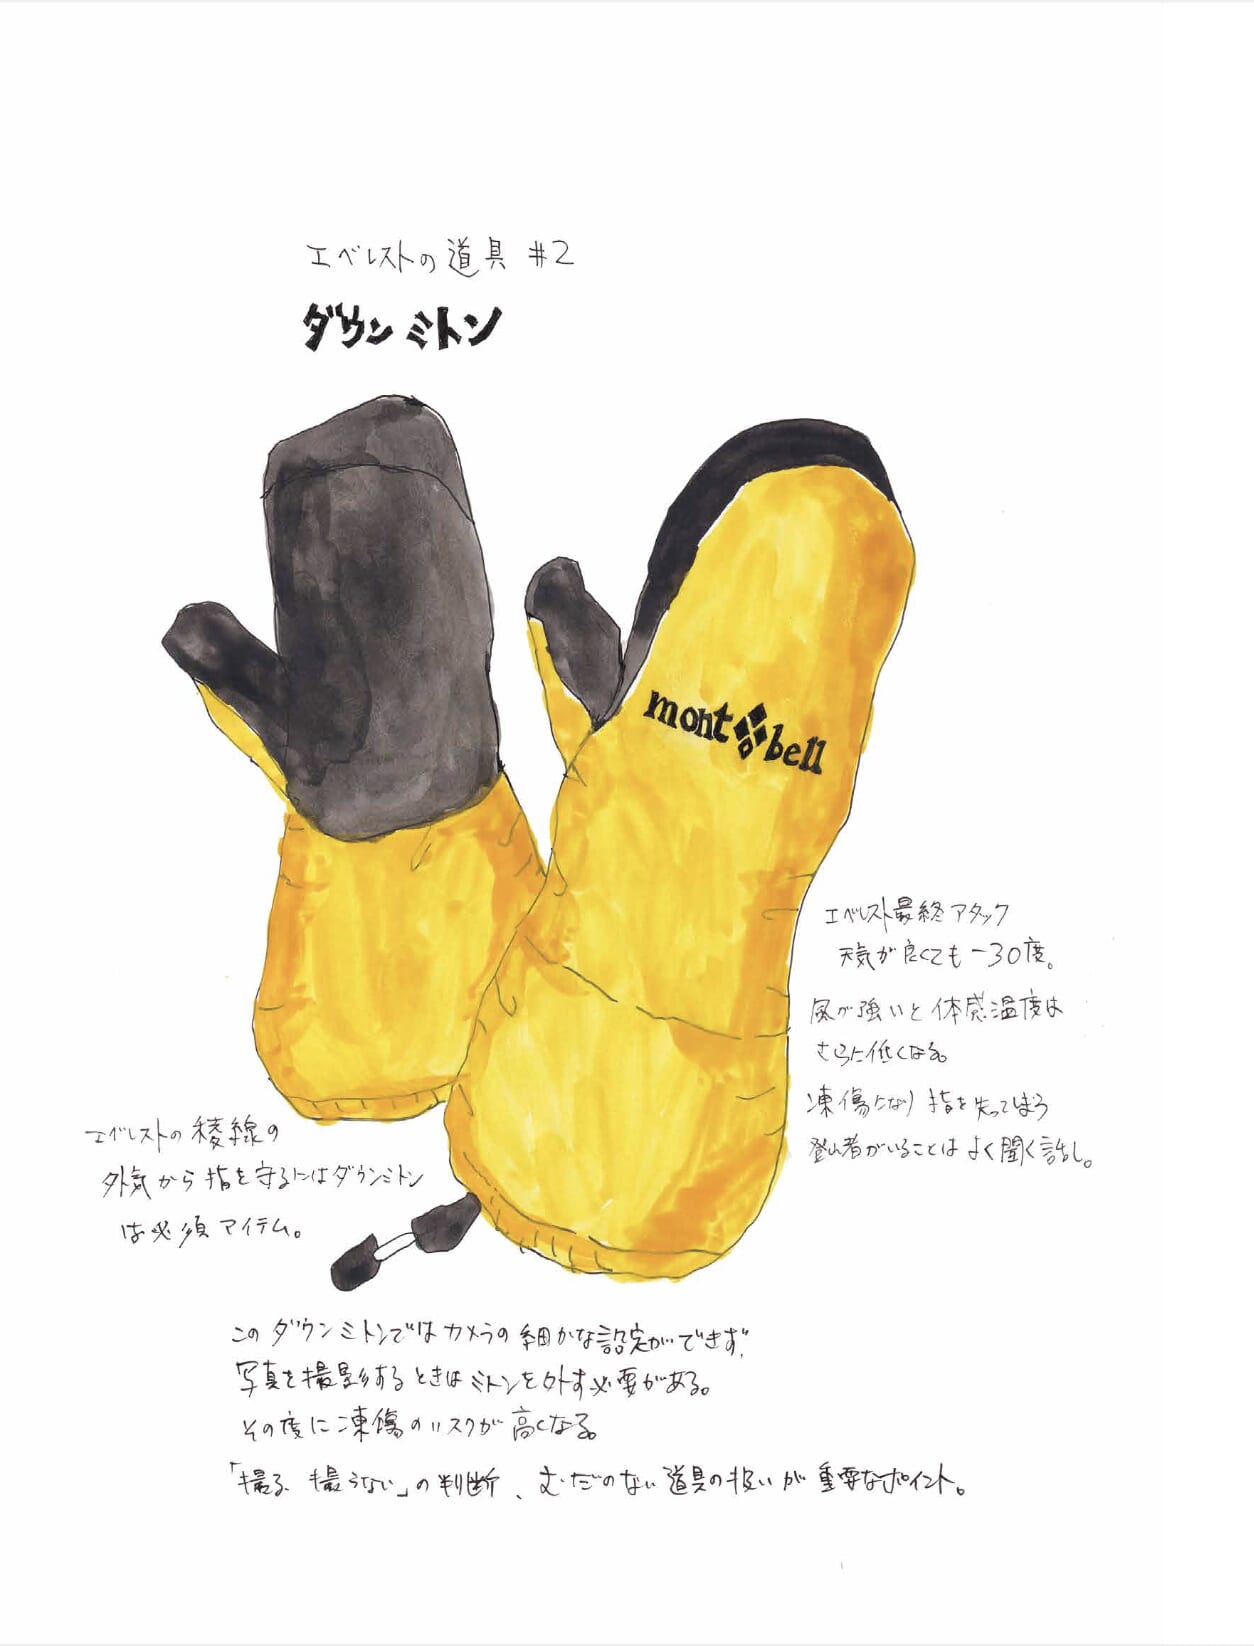 エベレストの道具 #2
ダウンミトン
mont bell
エベレスト最終アタック
天気が良くても-30度。
風が強いと体感温度は
さらに低くなる。
凍傷になり指を失ってしまう
登山者がいることはよく聞く話し。
エベレストの稜線の
外気から指を守るにはダウンミトン
は必須アイテム。
このダウンミトンではカメラの細かな設定ができず、
写真を撮影するときはミトンを外す必要がある。
その度に凍傷のリスクが高くなる。
「撮る、撮らない」の判断、むだのない道具の扱いが重要なポイント。